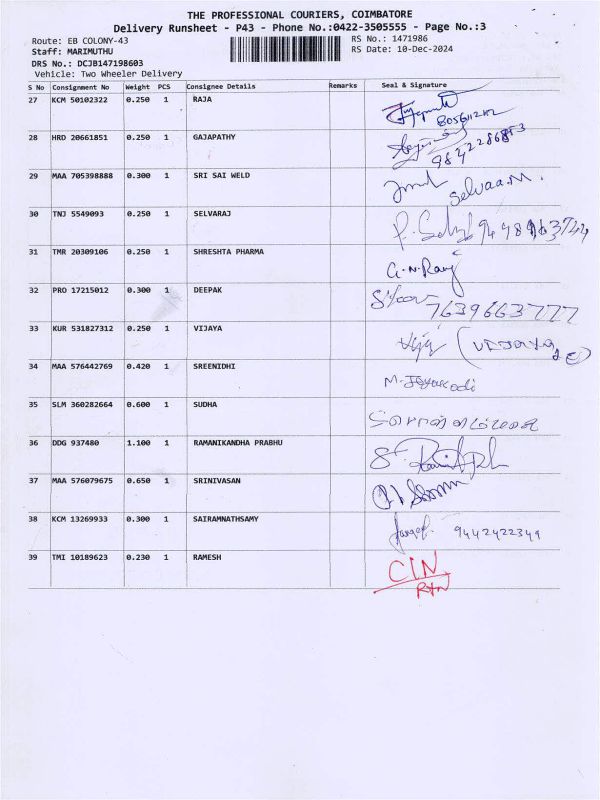 THE PROFESSIONAL COURIERS, COIMBATORE
Delivery Runsheet - P43 - Phone No.:0422-3505555 - Page No.:3
Route: EB COLONY-43 RS No.: 1471986
Staff: MARIMUTHU RS Date: 10-Dec-2024
DRS No.: DCJB147198603
Vehicle: Two Wheeler Delivery
S No Consignment No Weight PCS Consignee Details Remarks Seal & Signature
27 KCM 50102322 0.250 1 RAJA
28 HRD 20661851 0.250 1 GAJAPATHY
29 MAA 705398888 0.300 1 SRI SAI WELD Selvaa.M.
30 TNJ 5549093 0.250 1 SELVARAJ
31 TMR 20309106 0.250 1 SHRESHTA PHARMA G.N.Rav
32 PRO 17215012 0.300 1 DEEPAK 7639663777
33 KUR 531827312 0.250 1 VIJAYA
34 MAA 576442769 0.420 1 SREENIDHI M. Jeyakodi
35 SLM 360282664 0.600 1 SUDHA
36 DDG 937480 1.100 1 RAMANIKANDHA PRABHU
37 MAA 576079675 0.650 1 SRINIVASAN
38 KCM 13269933 0.300 1 SAIRAMNATHSAMY 9442422349
39 TMI 10189623 0.230 1 RAMESH CIN
RTN